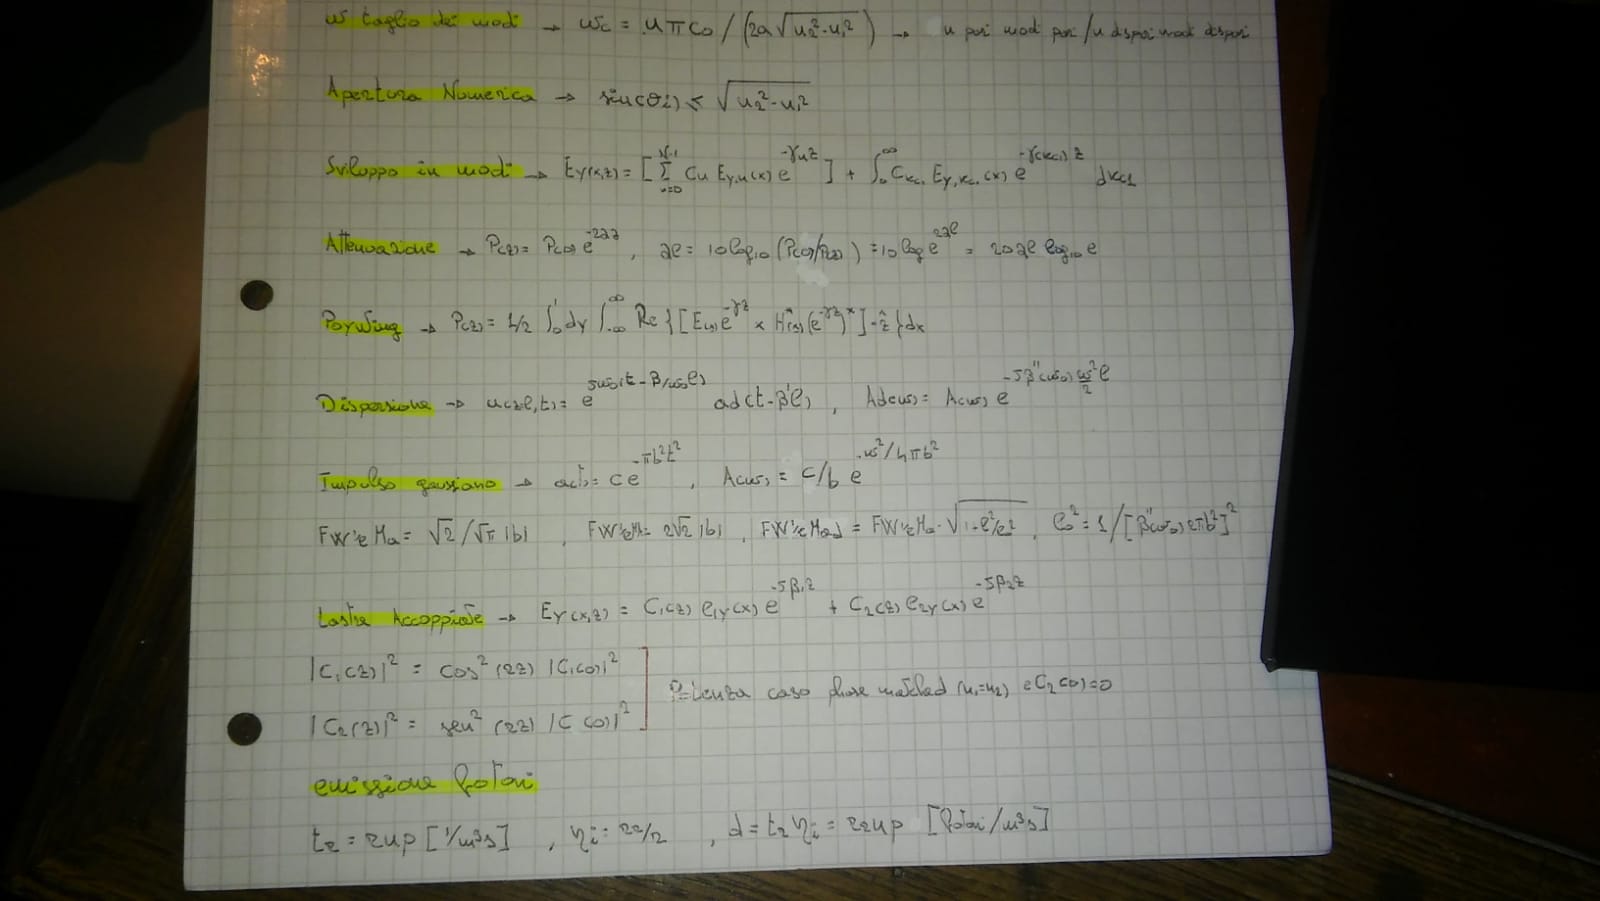 ω taglio dei modi → ωc = nπc₀ / (2a√(n₂²-n₁²)) → n pari modi pari / n dispari modi dispari
Apertura Numerica → sin(θi) ≤ √(n₂²-n₁²)
Sviluppo in modi → Ey(x,z) = [Σ Cn Ey,n(x) e^-γnz] + ∫₀^∞ Ckc₁ Ey,kc₁(x) e^-γ(kc₁)z dkc₁
Attenuazione → P(z) = P(0) e^-2αz , αl = 10log₁₀(P(0)/P(z)) = 10log e^2αl = 20αl log₁₀e
Poynting → P(z) = 1/2 ∫₀¹dy ∫-∞^∞ Re{[E(x)e^-γz × H*(x)(e^-γz)*]·ẑ}dx
Dispersione → u(z=l,t) = e^jω₀(t-β/ω₀ l) ad(t-β'l) , Ad(ω) = A(ω) e^-jβ''(ω₀) ω²/2 l
Impulso gaussiano → a(t) = ce^-πb²t² , A(ω) = c/b e^-ω²/4πb²
FW1/eMa = √2/√π|b| , FW1/eM = 2√2|b| , FW1/eMad = FW1/eMa·√ , l₀² = 1/[β''(ω₀)2πb²]²
Lastre Accoppiate → Ey(x,z) = C₁(z) e₁y(x) e^-jβ₁z + C₂(z) e₂y(x) e^-jβ₂z
|C₁(z)|² = cos²(z) |C₁(0)|²
|C₂(z)|² = sen²(z) |C(0)|²
Potenza caso phase matched (n₁=n₂) e C₂(0)=0
emissione fotoni
tr = rnp [1/m³s] , ηi = rr/r , d = tr ηi = rrnp [fotoni/m³s]